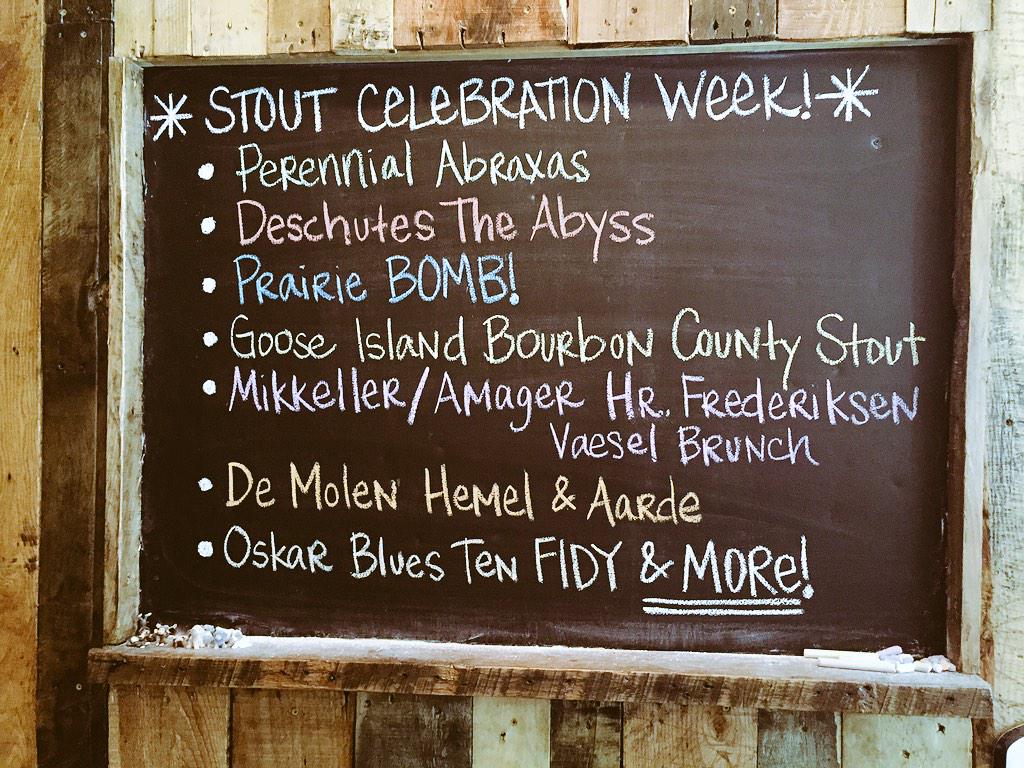 * STOUT CELEBRATION WEEK! *
• Perennial Abraxas
• Deschutes The Abyss
• Prairie BOMB!
• Goose Island Bourbon County Stout
• Mikkeller/Amager Hr. Frederiksen
Vaesel Brunch
• De Molen Hemel & Aarde
• Oskar Blues Ten FIDY & MORe!